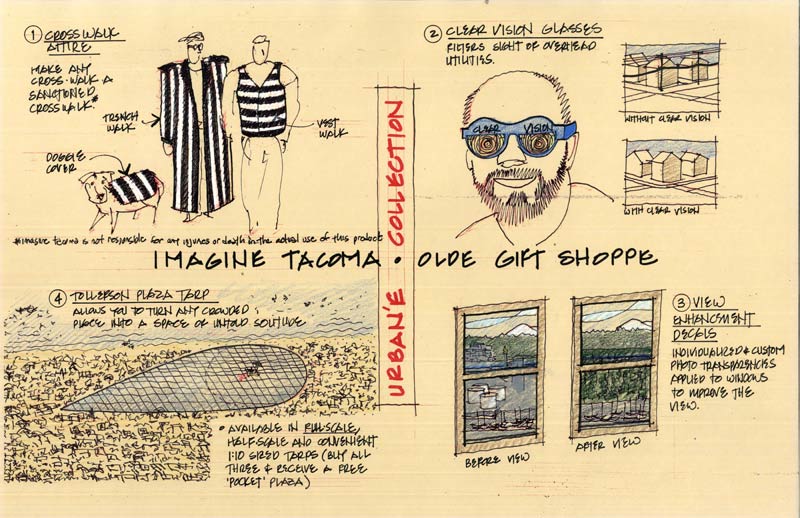 ① CROSSWALK
ATTIRE
MAKE ANY
CROSS-WALK A
SANCTIONED
CROSSWALK*
TRENCH
WALK
VEST
WALK
DOGGIE
COVER
*imagine tacoma is not responsible for any injuries or death in the actual use of this product
② CLEAR VISION GLASSES
FILTERS SIGHT OF OVERHEAD
UTILITIES.
CLEAR VISION
WITHOUT CLEAR VISION
WITH CLEAR VISION
URBAN'E COLLECTION
IMAGINE TACOMA • OLDE GIFT SHOPPE
③ VIEW
ENHANCEMENT
DECALS
INDIVIDUALIZED & CUSTOM
PHOTO TRANSPARENCIES
APPLIED TO WINDOWS
TO IMPROVE THE
VIEW.
BEFORE VIEW
AFTER VIEW
④ TOLLEFSON PLAZA TARP
ALLOWS YOU TO TURN ANY CROWDED
PLACE INTO A SPACE OF UNTOLD SOLITUDE
• AVAILABLE IN FULLSCALE,
HALFSCALE AND CONVENIENT
1:10 SIZED TARPS (BUY ALL
THREE & RECEIVE A FREE
'POCKET' PLAZA)